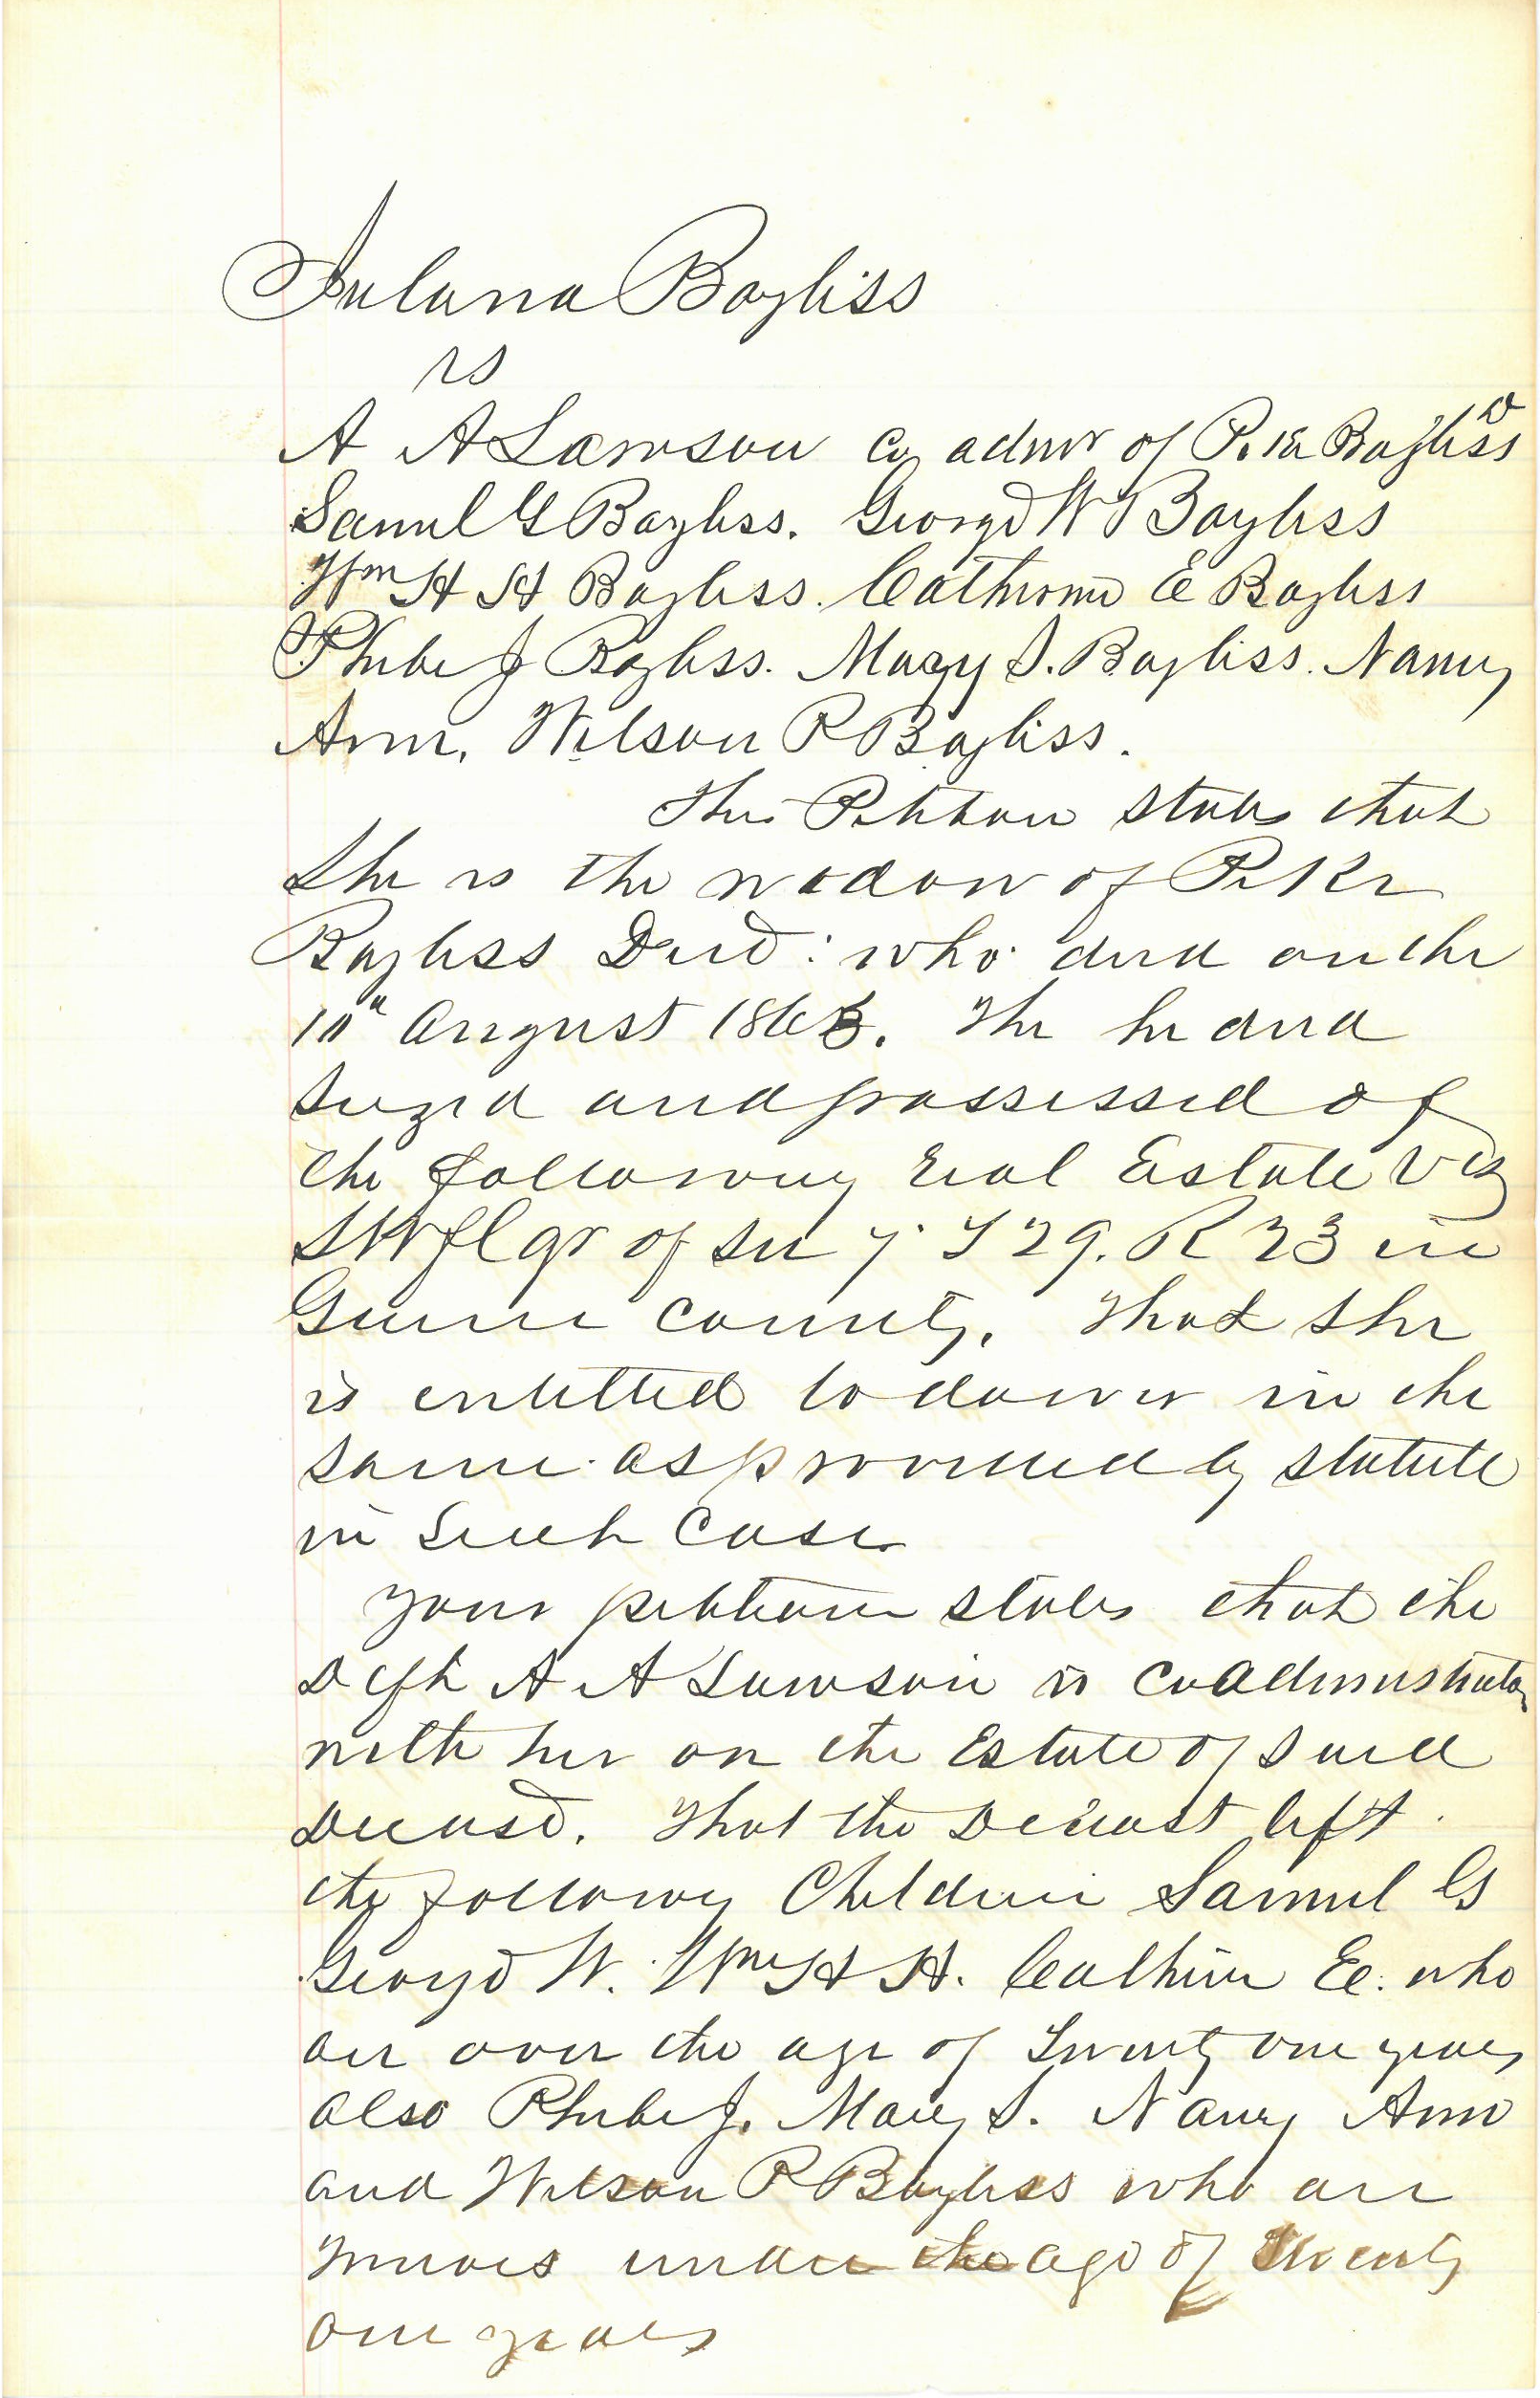 Juliana Bayliss
vs
A A Lawson co admr of P. K. Bayliss D
Samuel G Bayliss. George W Bayliss
Wm H H Bayliss. Catherine E Bayliss
Phebe J Bayliss. Mary S. Bayliss. Nancy
Ann, Wilson R Bayliss.
The Petition states that
she is the widow of
Bayliss Decd: who died on the
10th August 1863. The he died
siezed and possessed of
the following real Estate viz
SW fl qr of sec 7. T 29. R 23 in
Greene County. That she
is entitled to dower in the
same as provided by statute
in such case
your petitioner states that the
Deft A A Lawson is coadministrator
with her on the Estate of said
deceased. That the Deceast left
the following Children Samuel G
George W. Wm H H. Catherine E. who
are over the age of Twenty one years
also Phebe J. Mary S. Nancy Ann
and Wilson R Bayliss who are
minors under the age of Twenty
one years